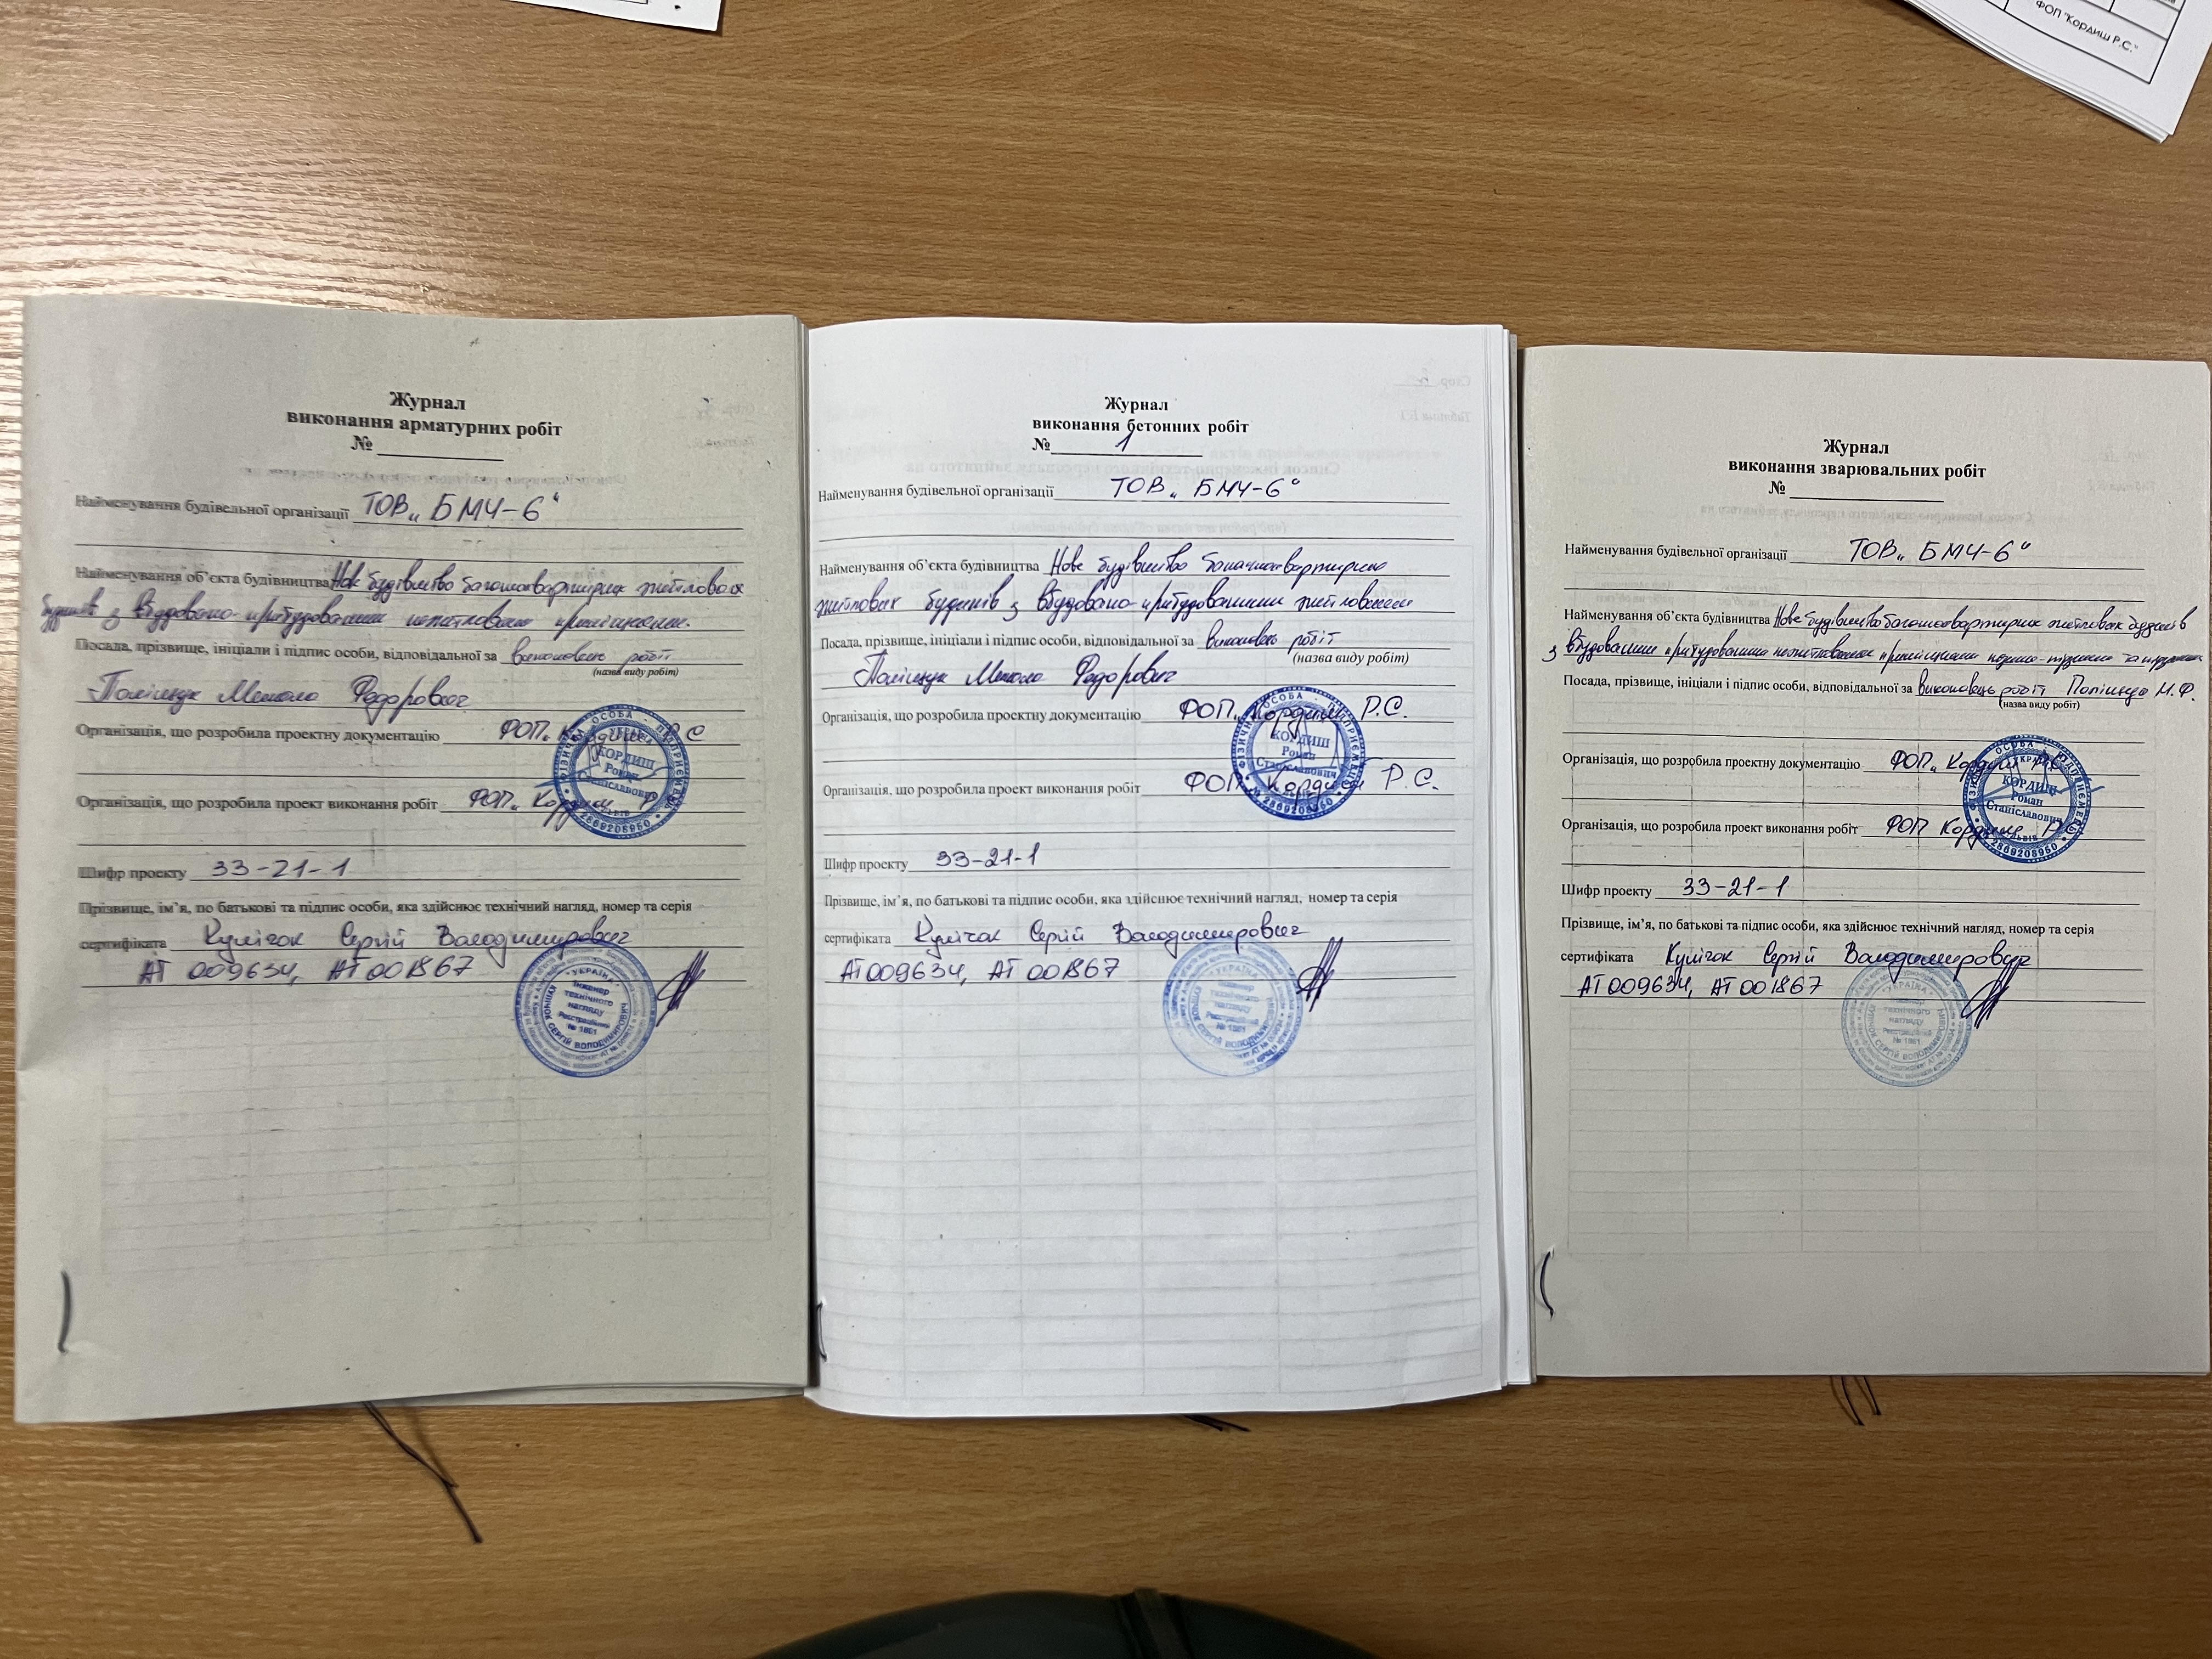 ФОП "Кордиш Р.С."
Журнал
виконання арматурних робіт
№
Найменування будівельної організації ТОВ „БМЧ-6“
Найменування об’єкта будівництва Нове будівництво багатоквартирних житлових
будинків з вбудовано-прибудованими нежитловими приміщеннями.
Посада, прізвище, ініціали і підпис особи, відповідальної за виконавець робіт
(назва виду робіт)
Поліщук Микола Федорович
Організація, що розробила проектну документацію ФОП „Кордиш Р.С
Організація, що розробила проект виконання робіт ФОП „Кордиш Р.
Шифр проекту 33-21-1
Прізвище, ім’я, по батькові та підпис особи, яка здійснює технічний нагляд, номер та серія
сертифіката Кулічок Сергій Володимирович
АТ 009634, АТ 001867
ФІЗИЧНА ОСОБА - ПІДПРИЄМЕЦЬ
УКРАЇНА
КОРДИШ
Роман
Станіславович
м. ЛЬВІВ
2869208950
"УКРАЇНА"
Інженер
технічного
нагляду
Реєстраційний
№ 1861
СЕРГІЙ ВОЛОДИМИРОВИЧ
Журнал
виконання бетонних робіт
№ 1
Найменування будівельної організації ТОВ „БМЧ-6“
Найменування об’єкта будівництва Нове будівництво багатоквартирних
житлових будинків з вбудовано-прибудованими житловими
Посада, прізвище, ініціали і підпис особи, відповідальної за виконавець робіт
(назва виду робіт)
Поліщук Микола Федорович
Організація, що розробила проектну документацію ФОП „Кордиш Р.С.
Організація, що розробила проект виконання робіт ФОП „Кордиш Р.С.
Шифр проекту 33-21-1
Прізвище, ім’я, по батькові та підпис особи, яка здійснює технічний нагляд, номер та серія
сертифіката Кулічок Сергій Володимирович
АТ 009634, АТ 001867
ФІЗИЧНА ОСОБА - ПІДПРИЄМЕЦЬ
КОРДИШ
Роман
Станіславович
2869208950
"УКРАЇНА"
Інженер
технічного
нагляду
Реєстраційний
№ 1861
СЕРГІЙ ВОЛОДИМИРОВИЧ
Журнал
виконання зварювальних робіт
№
Найменування будівельної організації ТОВ „БМЧ-6“
Найменування об’єкта будівництва Нове будівництво багатоквартирних житлових будинків
з вбудованими прибудованими нежитловими приміщеннями
Посада, прізвище, ініціали і підпис особи, відповідальної за виконавець робіт Поліщук М.Ф.
(назва виду робіт)
Організація, що розробила проектну документацію ФОП „Кордиш Р.С.
Організація, що розробила проект виконання робіт ФОП Кордиш Р.
Шифр проекту 33-21-1
Прізвище, ім’я, по батькові та підпис особи, яка здійснює технічний нагляд, номер та серія
сертифіката Кулічок Сергій Володимирович
АТ 009634, АТ 001867
ОСОБА - ПІДПРИЄМЕЦЬ
УКРАЇНА
КОРДИШ
Роман
Станіславович
м. ЛЬВІВ
2869208950
"УКРАЇНА"
Інженер
технічного
нагляду
Реєстраційний
№ 1861
СЕРГІЙ ВОЛОДИМИРОВИЧ